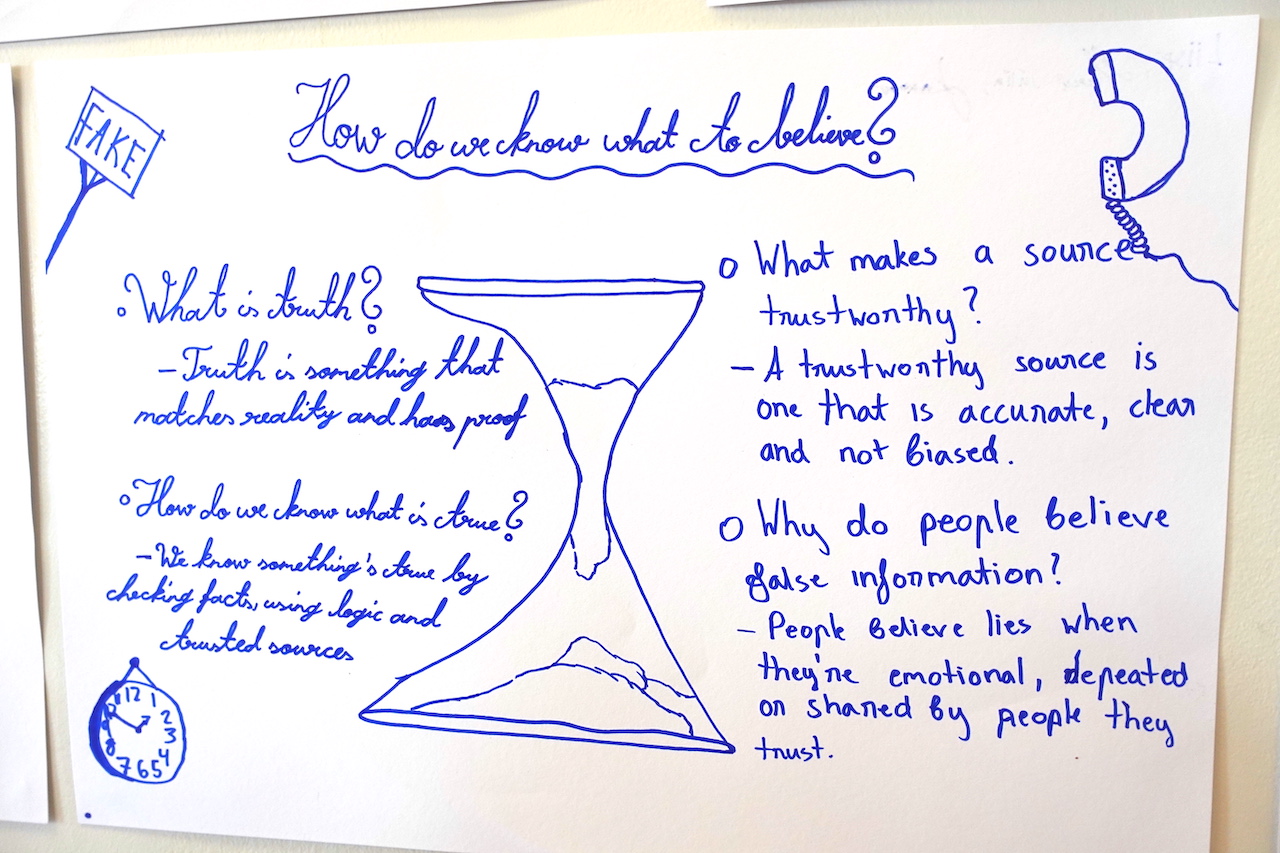 FAKE
How do we know what to believe?
What is truth?
- Truth is something that
matches reality and has proof
How do we know what is true?
- We know something's true by
checking facts, using logic and
trusted sources
What makes a source
trustworthy?
- A trustworthy source is
one that is accurate, clear
and not biased.
Why do people believe
false information?
- People believe lies when
they're emotional, repeated
or shared by people they
trust.
12 1
2
3
4
5
6
7
8
9
10